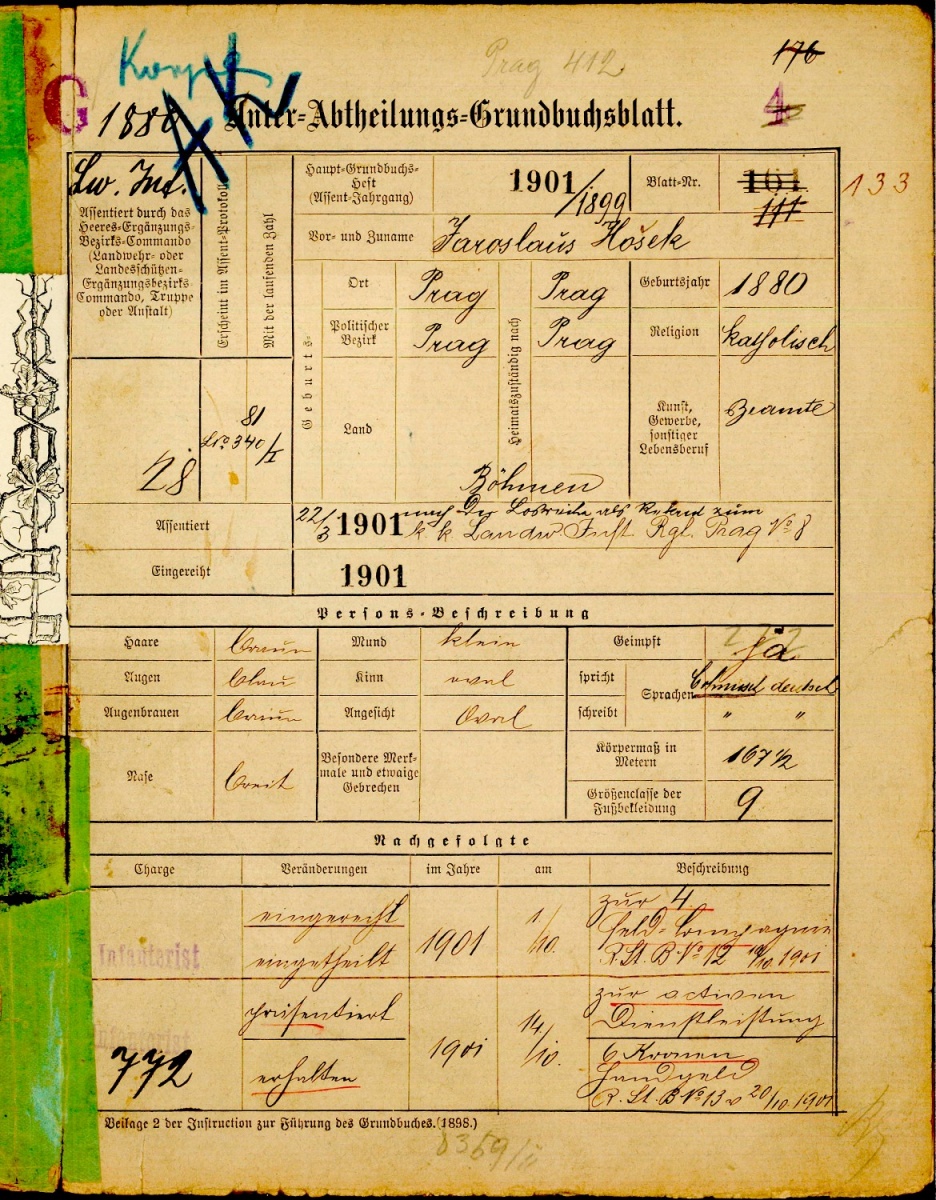 Prag 412
176
G
1880
4
Unter-Abtheilungs-Grundbuchsblatt.
Lw. Inf.
Assentiert durch das
Heeres-Ergänzungs-
Bezirks-Commando
(Landwehr- oder
Landesschützen-
Ergänzungsbezirks-
Commando, Truppe
oder Anstalt)
28
Erscheint im Assent-Protokoll
Mit der laufenden Zahl
81
No 340/I
Haupt-Grundbuchs-
Heft
(Assent-Jahrgang)
1901/1899
Blatt-Nr.
161
111
133
Vor- und Zuname
Jaroslaus Hošek
Geburts
Ort
Prag
Heimatszuständig nach
Prag
Geburtsjahr
1880
Politischer
Bezirk
Prag
Prag
Religion
katholisch
Land
Böhmen
Kunst,
Gewerbe,
sonstiger
Lebensberuf
Beamte
Assentiert
22/3 1901 nach der Losreihe als Rekrut zum
k k Landw Inft Rgt. Prag No 8
Eingereiht
1901
Persons-Beschreibung
Haare
braun
Mund
klein
Geimpft
ja
Augen
blau
Kinn
oval
spricht
Sprachen
böhmisch deutsch
Augenbrauen
braun
Angesicht
Oval
schreibt
" "
Nase
breit
Besondere Merk-
male und etwaige
Gebrechen
Körpermaß in
Metern
167 1/2
Größenclasse der
Fußbekleidung
9
Nachgefolgte
Charge
Veränderungen
im Jahre
am
Beschreibung
Infanterist
eingerückt
eingetheilt
1901
1/10.
zur 4.
Feld-Compagnie
R. St. B No 12 10/10 1901
Infanterist
772
präsentiert
erhalten
1901
14/10.
zur activen
Dienstleistung
6 Kronen
Handgeld
R. St. B No 13 v 20/10 1901
Beilage 2 der Instruction zur Führung des Grundbuches. (1898.)
8369/II